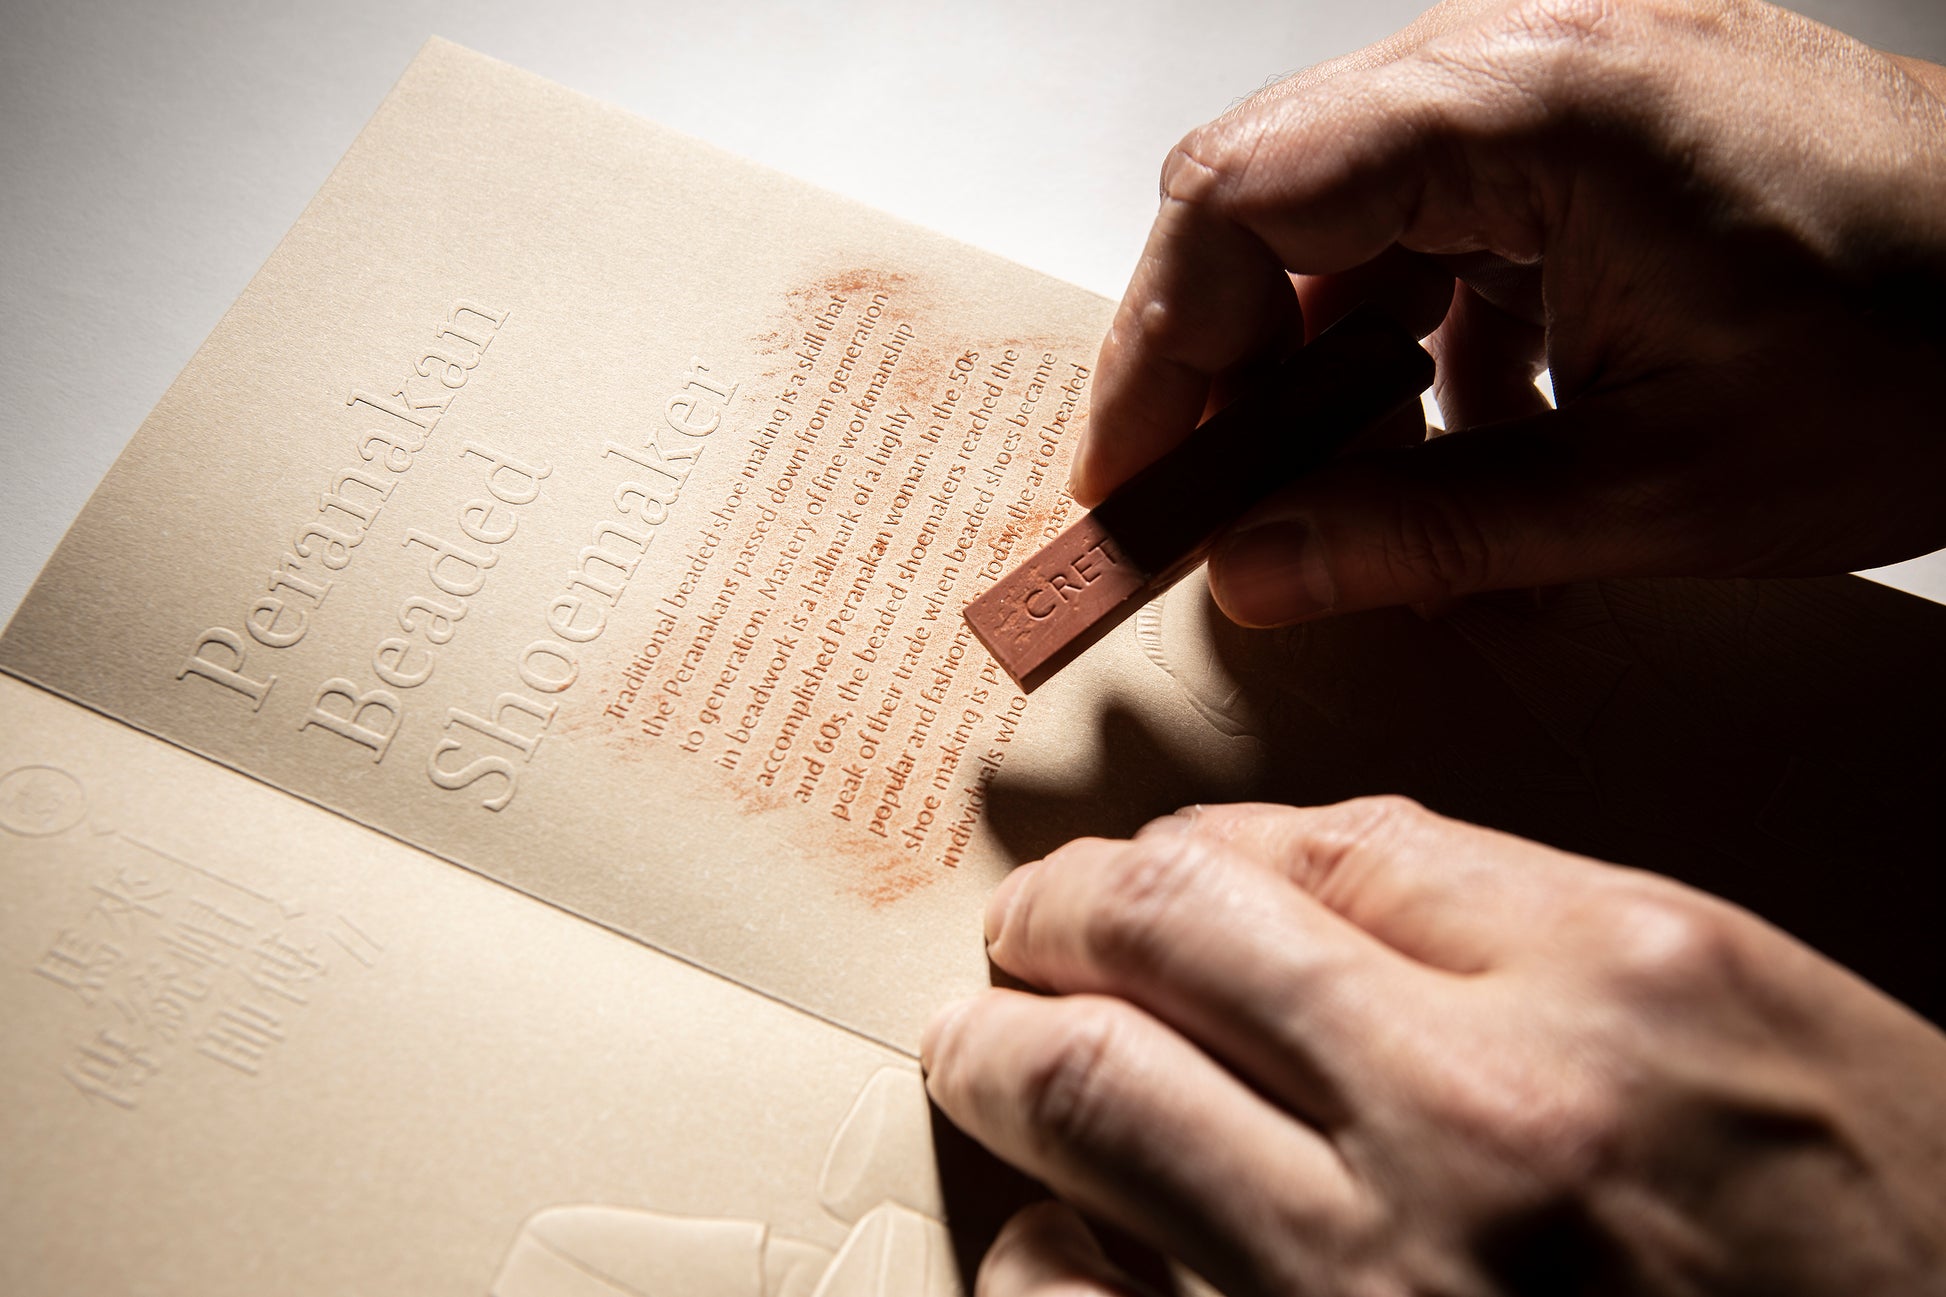 Peranakan
Beaded
Shoemaker
Traditional beaded shoe making is a skill that
the Peranakans passed down from generation
to generation. Mastery of fine workmanship
in beadwork is a hallmark of a highly
accomplished Peranakan woman. In the 50s
and 60s, the beaded shoemakers reached the
peak of their trade when beaded shoes became
popular and fashiona Today, the art of beaded
shoe making is pr passi
individuals who
CRET
馬來
傳統帽
師傅